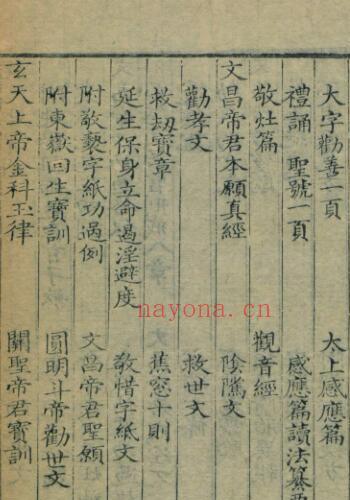 大字勸善一頁
太上感應篇
禮誦 聖號一頁
感應篇讀法纂要
敬灶篇
觀音經
文昌帝君本願真經
陰隲文
勸孝文
救世文
救劫寶章
蕉窓十則
延生保身立命過淫避度
敬惜字紙文
附敬褻字紙功過例
文昌帝君聖願
附東嶽回生寶訓
圓明斗帝勸世文
玄天上帝金科玉律
關聖帝君寶訓
nayona.cn